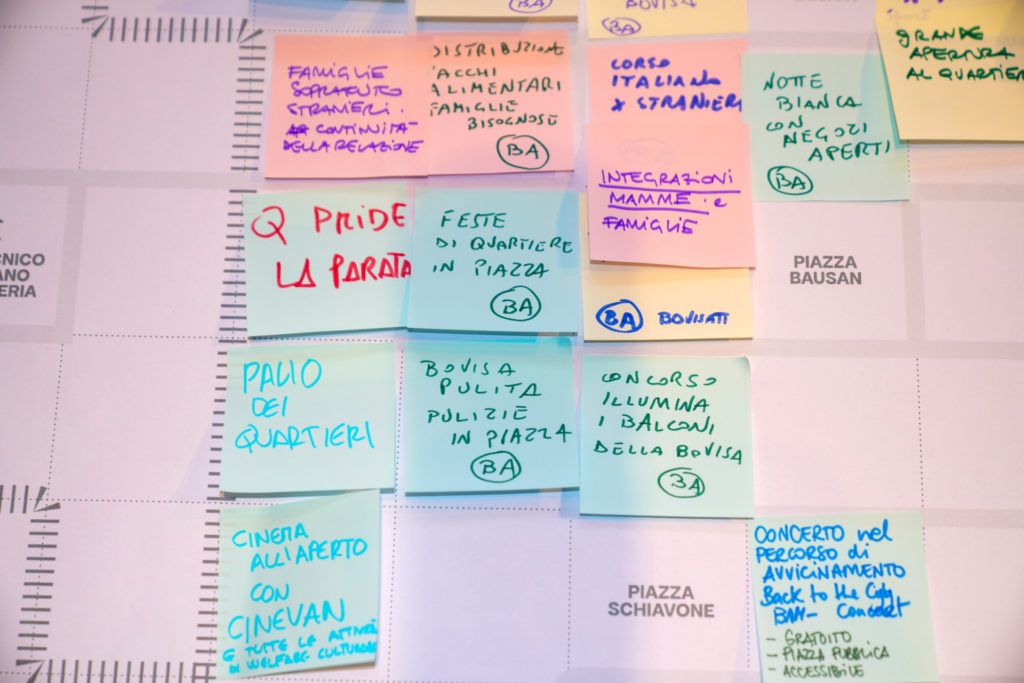 BA
BOVISA
BA
GRANDE
APERTURA
AL QUARTIER
FAMIGLIE
SOPRATUTTO
STRANIERI.
CONTINUITA'
DELLA RELAZIONE
DISTRIBUZIONE
PACCHI
ALIMENTARI
FAMIGLIE
BISOGNOSE
BA
CORSO
ITALIANO
X STRANIERI
INTEGRAZIONI
MAMME e
FAMIGLIE
BA BOVISATI
NOTTE
BIANCA
CON
NEGOZI
APERTI
BA
Q PRIDE
LA PARATA
FESTE
DI QUARTIERE
IN PIAZZA
BA
PIAZZA
BAUSAN
CNICO
ANO
ERIA
PALIO
DEI
QUARTIERI
BOVISA
PULITA
PULIZIE
IN PIAZZA
BA
CONCORSO
ILLUMINA
I BALCONI
DELLA BOVISA
BA
CINEMA
ALL'APERTO
CON
CINEVAN
E TUTTE LE ATTIVITÀ
DI WELFARE CULTURALE
PIAZZA
SCHIAVONE
CONCERTO nel
PERCORSO di
AVVICINAMENTO
Back to the City
Concert
- GRATUITO
- PIAZZA PUBBLICA
- ACCESSIBILE